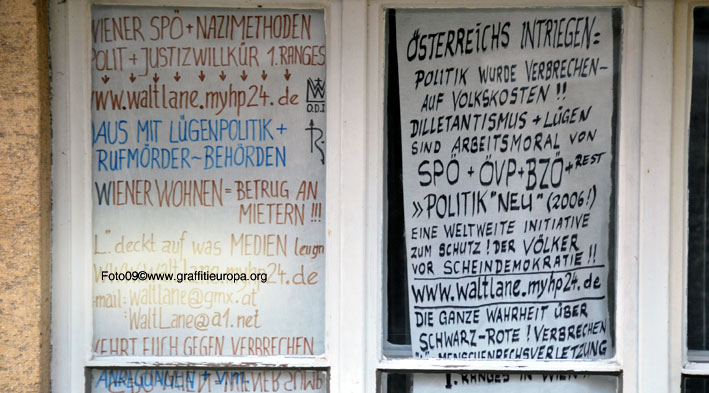 WIENER SPÖ + NAZIMETHODEN
POLIT + JUSTIZWILLKÜR 1. RANGES
www.waltlane.myhp24.de
O.D.I
DAUS MIT LÜGENPOLITIK +
RUFMÖRDER~BEHÖRDEN
WIENER WOHNEN = BETRUG AN
MIETERN !!!
L." deckt auf was MEDIEN leugn
waltlane.myhp24.de
Foto09©www.graffitieuropa.org
mail: waltlane@gmx.at
:WaltLane@a1.net
WEHRT EUCH GEGEN VERBRECHEN
ANREGUNGEN + v.m.
ÖSTERREICHS INTRIGEN =
POLITIK WURDE VERBRECHEN-
AUF VOLKSKOSTEN !!
DILLETANTISMUS + LÜGEN
SIND ARBEITSMORAL VON
SPÖ + ÖVP + BZÖ + REST
»POLITIK "NEU" (2006!)
EINE WELTWEITE INITIATIVE
ZUM SCHUTZ! DER VÖLKER
VOR SCHEINDEMOKRATIE!!
www.waltlane.myhp24.de
DIE GANZE WAHRHEIT ÜBER
SCHWARZ-ROTE! VERBRECHEN
MENSCHENRECHSVERLETZUNG
1. RANGES IN WIEN!